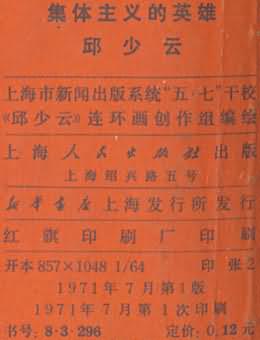 集体主义的英雄
邱少云
上海市新闻出版系统“五·七”干校
《邱少云》连环画创作组编绘
上海人民出版社出版
上海绍兴路五号
新华书店上海发行所发行
红旗印刷厂印刷
开本857×1048 1/64 印张2
1971年7月第1版
1971年7月第1次印刷
书号：8·3·296 定价：0.12元